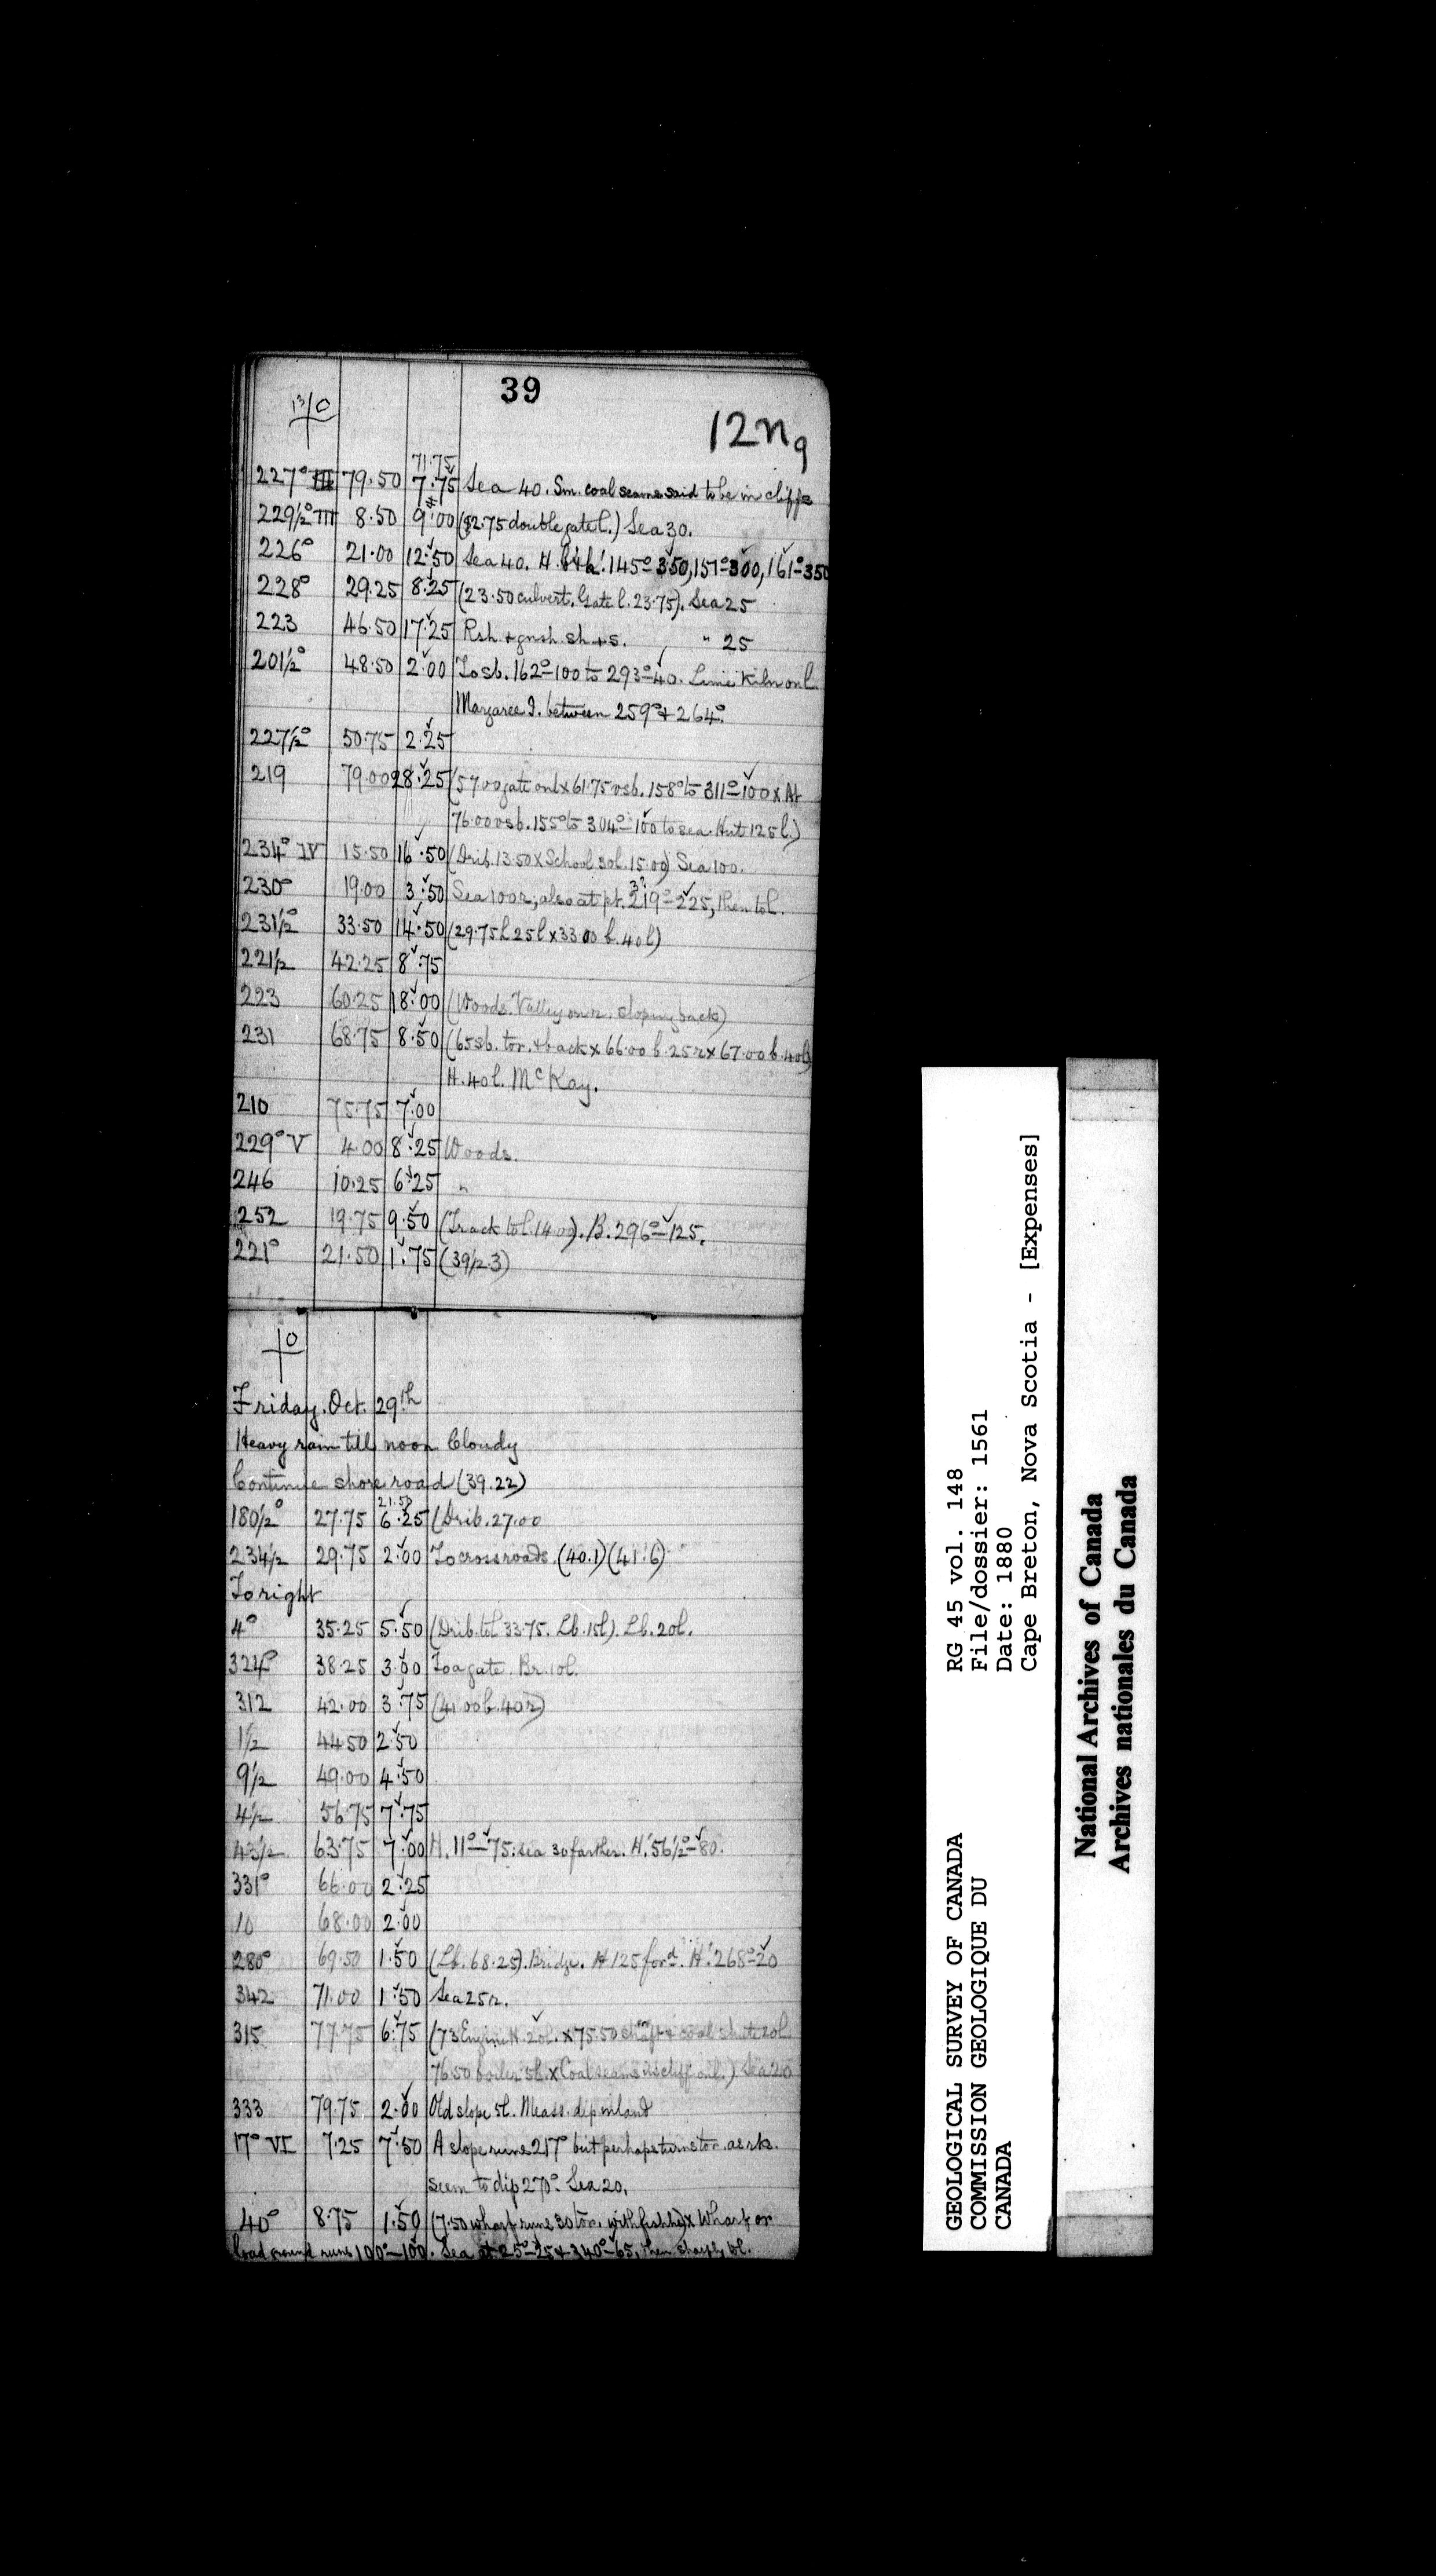 39
13/0
12n9
71.75
227° III 79.50 7.75 Sea 40. Sm. coal seams said to be in cliffs
229½° III 8.50 9.00 (82.75 double gate l.) Sea 30.
226° 21.00 12.50 Sea 40. H. 145°–350, 151°–300, 161°–350
228° 29.25 8.25 (23.50 culvert. Gate l. 23.75). Sea 25
223 46.50 17.25 Rsh + gnsh sh + s. " 25
201½° 48.50 2.00 To sb. 162°–100 to 293°–40. Lime Kiln on l.
Margaree I. between 259° + 264°.
227½° 50.75 2.25
219 79.00 28.25 (57.00 gate on l x 61.75 vsb. 158° to 311°–100 x At
76.00 vsb. 155° to 304°–100 to sea. Hut 125 l.)
234° IV 15.50 16.50 (Drib. 13.50 x School 30l. 15.00) Sea 100.
230° 19.00 3.50 Sea 100 r, also at pt. 219°–225, then to l.
231½° 33.50 14.50 (29.75 h 25l x 33.00 b. 40l)
221½ 42.25 8.75
223 60.25 18.00 (Woods. Valley on r. sloping back)
231 68.75 8.50 (65 sb. to r. + back x 66.00 b. 25 r x 67.00 b. 40l)
H. 40l. McKay.
210 75.75 7.00
229° V 4.00 8.25 Woods.
246 10.25 6.25 "
252 19.75 9.50 (Track to l. 14.00). B. 296°–125.
221° 21.50 1.75 (39½.3)
0
Friday. Oct. 29th
Heavy rain till noon Cloudy
Continue shore road (39.22)
21.50
180½° 27.75 6.25 (Drib. 27.00
234½ 29.75 2.00 To crossroads. (40.1) (41.6)
To right
4° 35.25 5.50 (Drib. to l 33.75. Lb. 15l). Lb. 20l.
324° 38.25 3.00 To a gate. Br. 10l.
312 42.00 3.75 (41.00 b. 40r)
1½ 44.50 2.50
9½ 49.00 4.50
4½ 56.75 7.75
43½ 63.75 7.00 H. 11°–75: sea 30 farther. H. 56½°–80.
331° 66.00 2.25
10 68.00 2.00
280° 69.50 1.50 (Lb. 68.25). Bridge. H 125 for'd. H. 268°–20
342 71.00 1.50 Sea 25 r.
315 77.75 6.75 (73 Engine H. 20l. x 75.50 shaft + coal shute 20l
76.50 boiler 5l. x Coal seams in cliff on l.) Sea 20
333 79.75 2.00 Old slope 5l. Meas. dip inland
17° VI 7.25 7.50 A slope runs 217° but perhaps turns to r. as rks.
seem to dip 270°. Sea 20.
40° 8.75 1.50 (7.50 wharf runs 30 to r. with fish hs) x Wharf or
road ground runs 100°–100. Sea at 25°–25 + 340°–65, then sharply to l.
GEOLOGICAL SURVEY OF CANADA
COMMISSION GEOLOGIQUE DU
CANADA
RG 45 vol. 148
File/dossier: 1561
Date: 1880
Cape Breton, Nova Scotia - [Expenses]
National Archives of Canada
Archives nationales du Canada